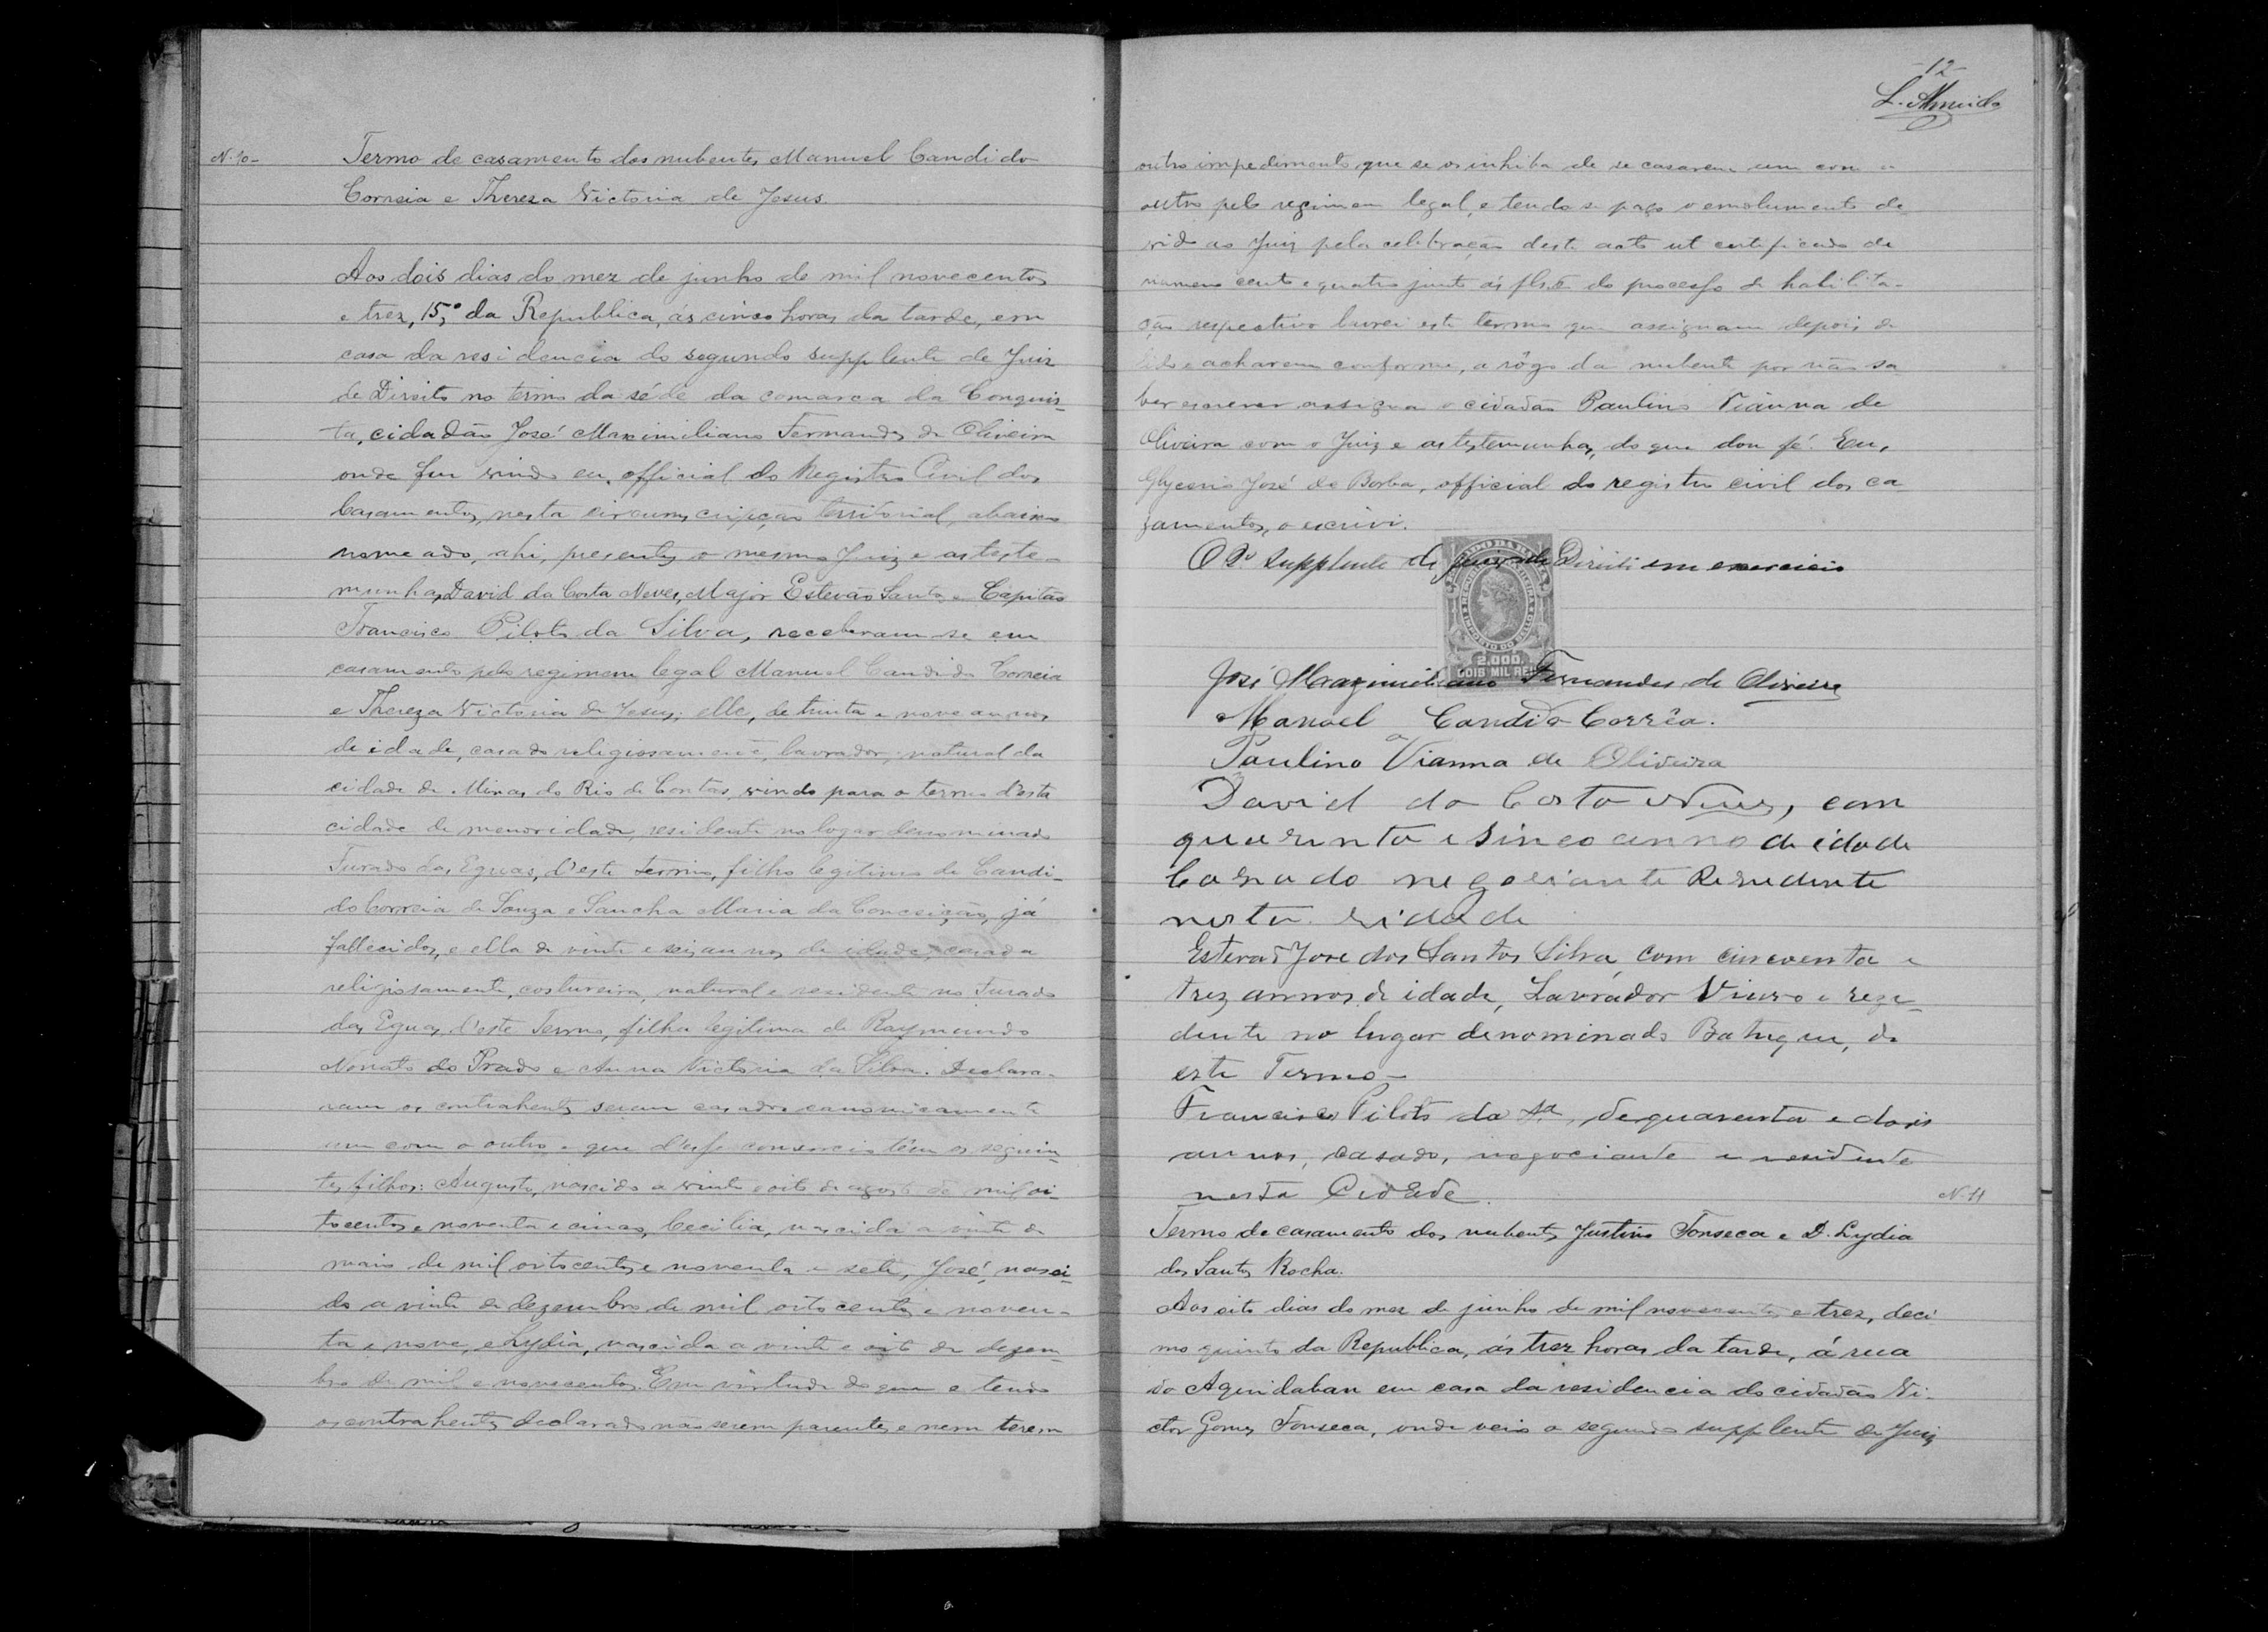 N. 10-
Termo de casamento dos nubentes Manuel Candido
Correia e Thereza Victoria de Jesus.
Aos dois dias do mez de junho de mil novecentos
e trez, 15º da Republica, ás cinco horas da tarde, em
casa da residencia do segundo supplente de Juiz
de Direito no termo da séde da comarca da Conquis-
ta, cidadão José Maximiliano Fernandes de Oliveira
onde fui vindo eu, official do Registro Civil dos
Casamentos, nesta circumscripção territorial, abaixo
nomeado, ahi, presentes o mesmo Juiz e as teste-
munhas, David da Costa Neves, Major Estevão Santos e Capitão
Francisco Piloto da Silva, receberam-se em
casamento pelo regimem legal Manuel Candido Correia
e Thereza Victoria de Jesus; elle, de trinta e nove annos
de idade, casado religiosamente, lavrador, natural da
cidade de Minas do Rio de Contas, vindo para o termo d'esta
cidade de menoridade, residente no logar denominado
Furado das Eguas, d'este termo, filho legitimo de Candi-
do Correia de Souza e Sancha Maria da Conceição, já
fallecidos, e ella de vinte e seis annos de idade, casada
religiosamente, costureira, natural e residente no Furado
das Eguas, d'este Termo, filha legitima de Raymundo
Nonato do Prado e Anna Victoria da Silva. Declara-
ram os contrahentes serem casados canonicamente
um com o outro, e que d'esse consorcio têm os seguin-
tes filhos: Augusto, nascido a vinte e oito de agosto de mil oi-
tocentos e noventa e cinco, Cecilia, nascida a vinte de
maio de mil oitocentos e noventa e sete, José, nasci-
do a vinte de dezembro de mil oitocentos e noven-
ta e nove, e Lydia, nascida a vinte e oito de dezem-
bro de mil e novecentos. Em virtude do que e tendo
os contrahentes declarado não serem parentes e nem terem
-12-
L. Almeida
outro impedimento que se os inhiba de se casarem um com o
outro pelo regimen legal, e tendo-se pago o emolumento de-
vido ao Juiz pela celebração deste acto ut certificado de
numero cento e quatro junto ás fls. do processo de habilita-
ção respectivo lavrei este termo que assignam depois de
lido e acharem conforme, a rôgo da nubente por não sa-
ber escrever assigna o cidadão Paulino Vianna de
Oliveira com o Juiz e as testemunhas, do que dou fé. Eu,
Glycerio José de Borba, official do registro civil dos ca-
samentos, o escrivi.
O 2º Supplente de Juiz de Direito em exercicio
2,000.
DOIS MIL REIS
José Maximiliano Fernandes de Oliveira
Manoel Candido Corrêa.
Paulino Vianna de Oliveira
David da Costa Neves, com
quarenta e sinco anno de idade
Casado negociante Residente
nesta sidade
Estevaõ Jose dos Santos Silva com cincoenta e
trez annos de idade, Lavrador Viuvo e rezi-
dente no lugar denominado Batuque, de
este Termo-
Francisco Piloto da Sa., de quarenta e dois
annos, casado, negociante e residente
nesta Cidade.
N. 11
Termo de casamento dos nubentes Justino Fonseca e D. Lydia
dos Santos Rocha.
Aos oito dias do mez de junho de mil novecentos e trez, deci-
mo quinto da Republica, ás trez horas da tarde, á rua
do Aquidaban em casa da residencia do cidadão Vi-
ctor Gomes Fonseca, onde veio o segundo supplente de Juiz